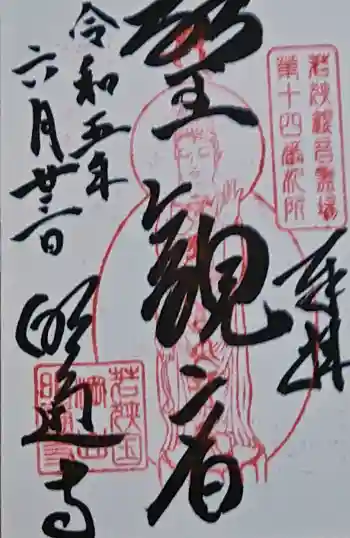 奉拝
若狭観音霊場
第十四番札所
聖観音
令和五年
六月廿三日
明通寺
若狭国
棡山
明通寺